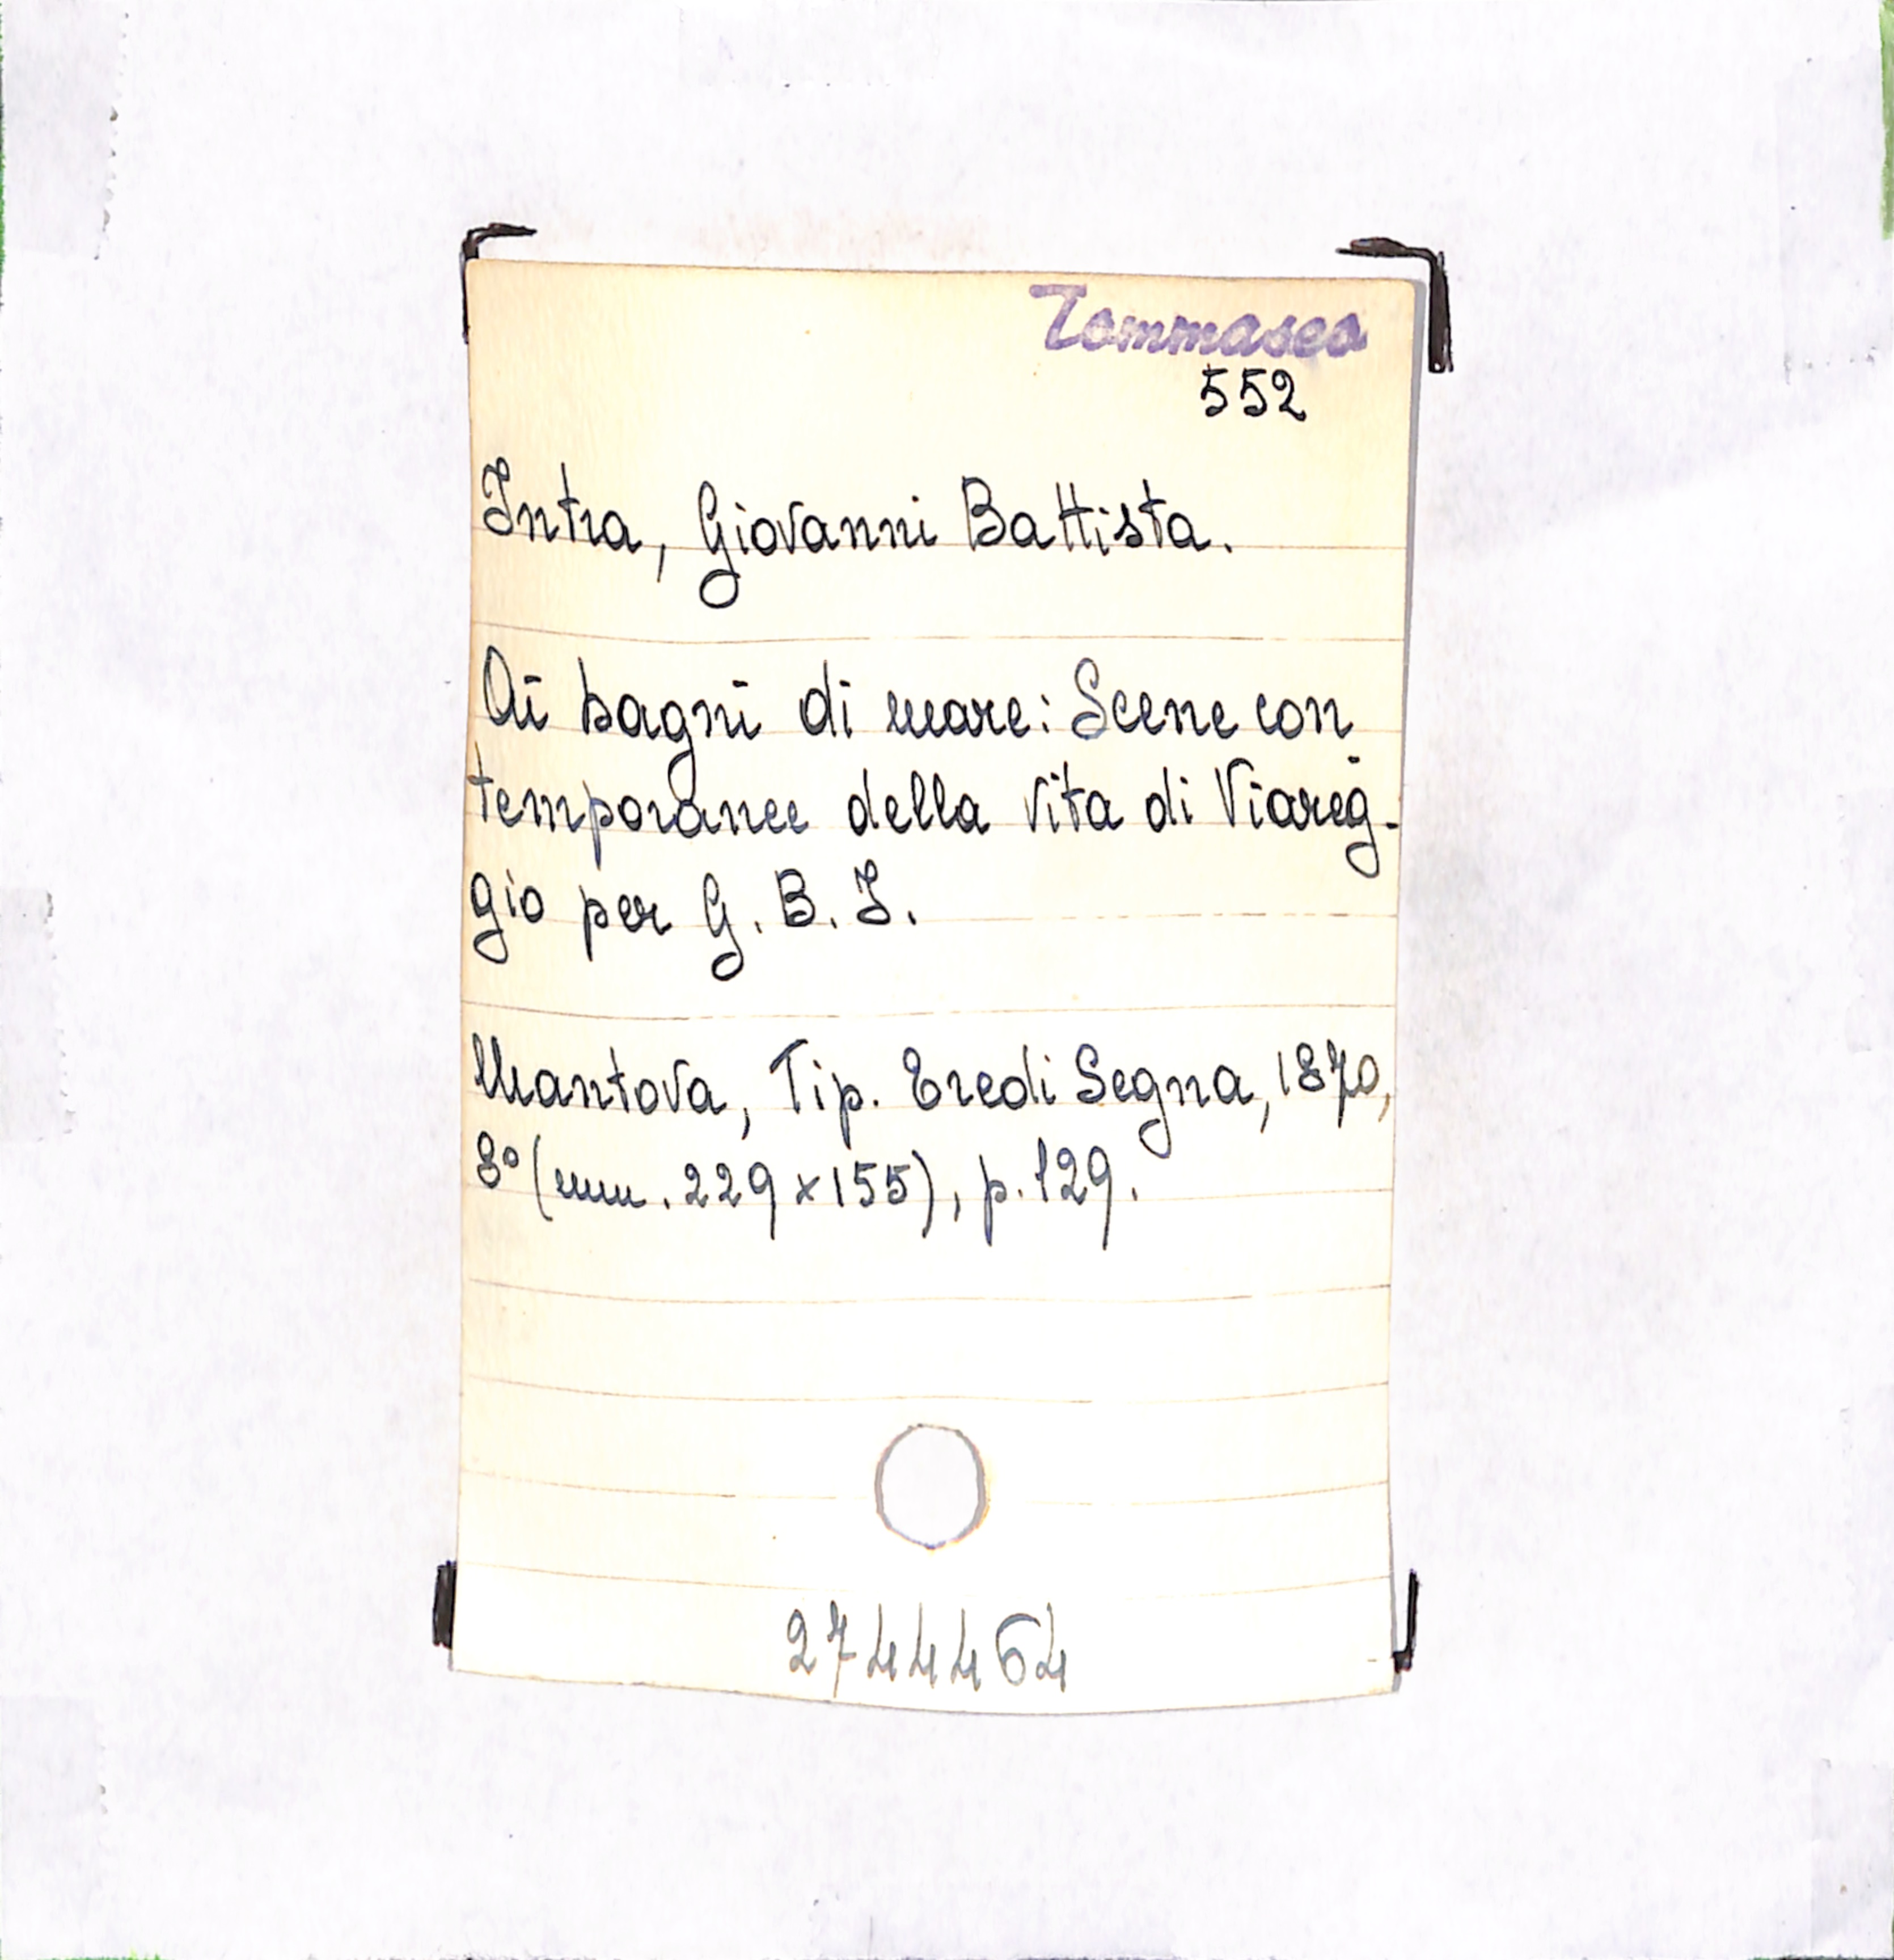 Tommaseo
552
Intra, Giovanni Battista.
Ai bagni di mare: Scene con
temporanee della vita di Viareg-
gio per G. B. I.
Mantova, Tip. Eredi Segna, 1870,
8° (mm. 229 x 155), p. 129.
2744464